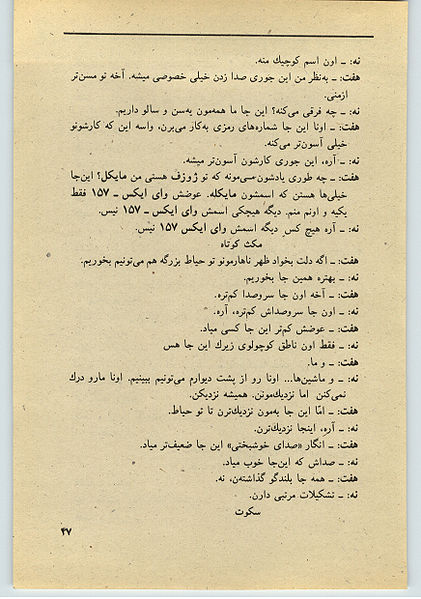 نه: ـ اون اسم کوچیك منه.
هفت: ـ به‌نظر من این جوری صدا زدن خیلی خصوصی میشه. آخه تو مسن‌تر
ازمنی.
نه: ـ چه فرقی می‌کنه؟ این جا ما همه‌مون یه‌سن و سالو داریم.
هفت: ـ اونا این جا شماره‌های رمزی به‌کار می‌برن، واسه این که کارشونو
خیلی آسون‌تر می‌کنه.
نه: ـ آره، این جوری کارشون آسون‌تر میشه.
هفت: ـ چه طوری یادشون‌ می‌مونه که تو ژوزف هستی من مایکل؟ این‌جا
خیلی‌ها هستن که اسمشون مایکله. عوضش وای ایکس ـ ۱۵۷ فقط
یکیه و اونم منم. دیگه هیچکی اسمش وای ایکس ـ ۱۵۷ نیس.
نه: ـ آره هیچ کس دیگه اسمش وای ایکس ۱۵۷ نیس.
مکث کوتاه
هفت: ـ اگه دلت بخواد ظهر ناهارمونو تو حیاط بزرگه هم می‌تونیم بخوریم.
نه: ـ بهتره همین جا بخوریم.
هفت: ـ آخه اون جا سروصدا کم‌تره.
نه: ـ اون جا سروصداش کم‌تره، آره.
هفت: ـ عوضش کم‌تر این جا کسی میاد.
نه: ـ فقط اون ناطق کوچولوی زیرك این جا هس
هفت: ـ و ما.
نه: ـ و ماشین‌ها... اونا رو از پشت دیوارم می‌تونیم ببینیم. اونا مارو درك
نمی‌کنن اما نزدیک‌مونن. همیشه نزدیکن.
هفت: ـ امّا این جا به‌مون نزدیك‌ترن تا تو حیاط.
نه: ـ آره، اینجا نزدیك‌ترن.
هفت: ـ انگار «صدای خوشبختی» این جا ضعیف‌تر میاد.
نه: ـ صداش که این‌جا خوب میاد.
هفت: ـ همه جا بلندگو گذاشته‌ن، نه.
نه: ـ تشکیلات مرتبی دارن.
سکوت
۴۷